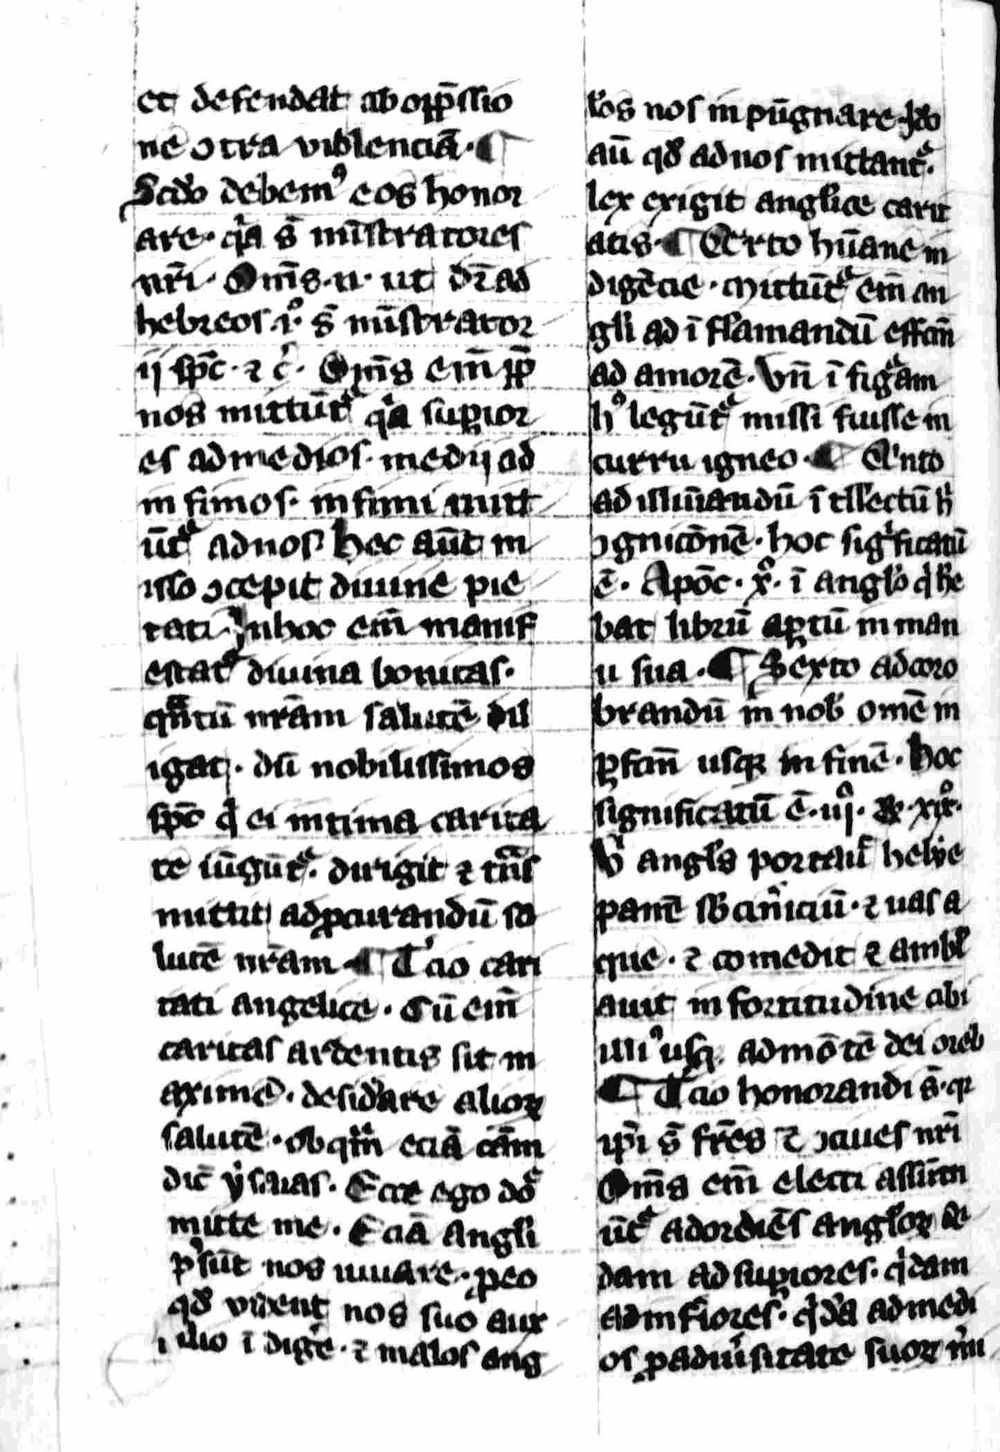 et defendat ab opp̄ssio
ne ɔtra violenciā · ¶
Scd̓o debemꝰ eos honor
are · q̓a s̄ mīstratores
nr̄i · Om̄s · n · ut dr̄ ad
hebreos · i° · s̄ mīstrator
ij sp̄c · ⁊ c̓ · Om̄s em̄ ꝓp̄
nos mittūt᷑ q̓a supior
es ad medios · medij ad
infimos · infimi mitt
ūt᷑ ad nos · hec aūt m
isso ɔcepit diuine pie
tati · Inhoc em̄ manif
estat᷑ diuina bonitas ·
qn̄tū nr̄am salutē dil
igat · dū nobilissimos
sp̄c q̓ ei intima carita
te iūgūt᷑ · dirigit ⁊ t̄ns
mittit ad ꝓcurandū sa
lutē nr̄am ¶ T̓cio cari
tati angelice · Cū em̄
caritas ardentis sit m
axime · desid̓are alioꝝ
salutē · ob qm̄ eciā cām
dic̄ ysaias · Ecce ego d᷑o
mitte me · Eciā angli
p̓sūt nos iuuare · ꝓ eo
qd̓ vident nos suo aux
ilio īdig̓e · ⁊ malos ang
l̓os nos inpūgnare · Id̓o
aū qd̓ ad nos mittant᷑ ·
lex exigit anglice carit
atis · ¶ Q̓rto hūane in
digēcie · mittūt᷑ em̄ an
gli ad īflamandū effcm̄
ad amorē · Vn̄ ī fig᷑am
hꝰ legūt᷑ missi fuisse in
curru igneo · ¶ Q̓nto
ad illūandū ītllectū ĥ
ɔgnicōnē · hoc sig̓ficatū
ē · Apōc · x° · ī angl̓o q̓ he
bat librū aꝑtū in man
u sua · ¶ Sexto ad coro
brandū in nob̓ omē in
ꝑfcm̄ usqꝫ in finē · hoc
significatū ē · iij · Rͤ · xix° ·
V̓ angl̓s portauit helye
panē sb̓cin̓iciū · ⁊ uas a
que · ⁊ comedit ⁊ ambl̓
auit in fortitudine cibi
illiꝰ usqꝫ ad mōtē dei oreb
¶ T̓cio honorandi s̄ · q̓
ip̄i s̄ fr̄es ⁊ ɔciues nr̄i
Om̄s em̄ electi assūm
ūt᷑ ad ordiēs angl̓oꝝ
dam ad suꝑiores · q̓dam
ad infiores · q̓da ad medi
os ꝓ aduersitate suoꝝ m̓i